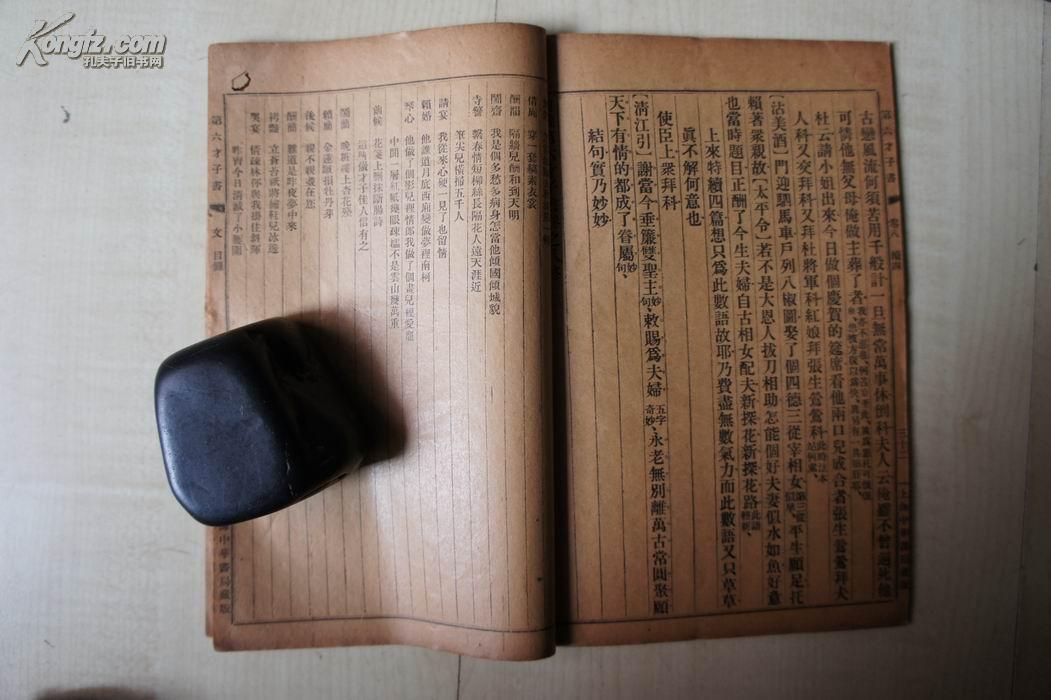 Kongfz.com
孔夫子旧书网
第六才子書 卷八
古戀風流何須苦用千般計一旦無常萬事休倒科夫人云
可憐他無父母俺做主葬了者
杜云請小姐出來今日做個慶賀的筵席看他兩口兒成合者張生鶯鶯拜夫
人科又交拜科又拜杜將軍科紅娘拜張生鶯鶯科
[沽美酒]門迎駟馬車戶列八椒圖娶了個四德三從宰相女平生願足托
賴著衆親故[太平令]若不是大恩人拔刀相助怎能個好夫妻似水如魚好意
也當時題目正酬了今生夫婦自古相女配夫新探花新探花路
上來特續四篇想只爲此數語故耶乃費盡無數氣力而此數語又只草草
使臣上衆拜科
眞不解何意也
[淸江引]謝當今垂簾雙聖主妙句、敕賜爲夫婦五字奇妙、永老無別離萬古常團聚願
天下有情的都成了眷屬妙句、
結句實乃妙妙
借廂 穿一套縞素衣裳
酬韻 隔牆兒酬和到天明
鬧齋 我是個多愁多病身怎當他傾國傾城貌
寺警 繫春情短柳絲長隔花人遠天涯近
筆尖兒橫掃五千人
請宴 我從來心硬一見了也留情
賴婚 他誰道月底西廂變做夢裡南柯
琴心 他做了個影兒裡情郎我做了個畫兒裡愛寵
中間一層紅紙幾眼疎櫺不是雲山幾萬重
前候 花箋上刪抹斷腸詩
這叫做才子佳人信有之
鬧簡 晚粧樓上杏花殘
賴簡 金蓮蹴損牡丹芽
後候 親不親盡在您
酬簡 難道是昨夜夢中來
拷艷 立蒼苔
哭宴
昨宵今日淸減了小腰圍
第六才子書 文 目錄
中華書局藏版